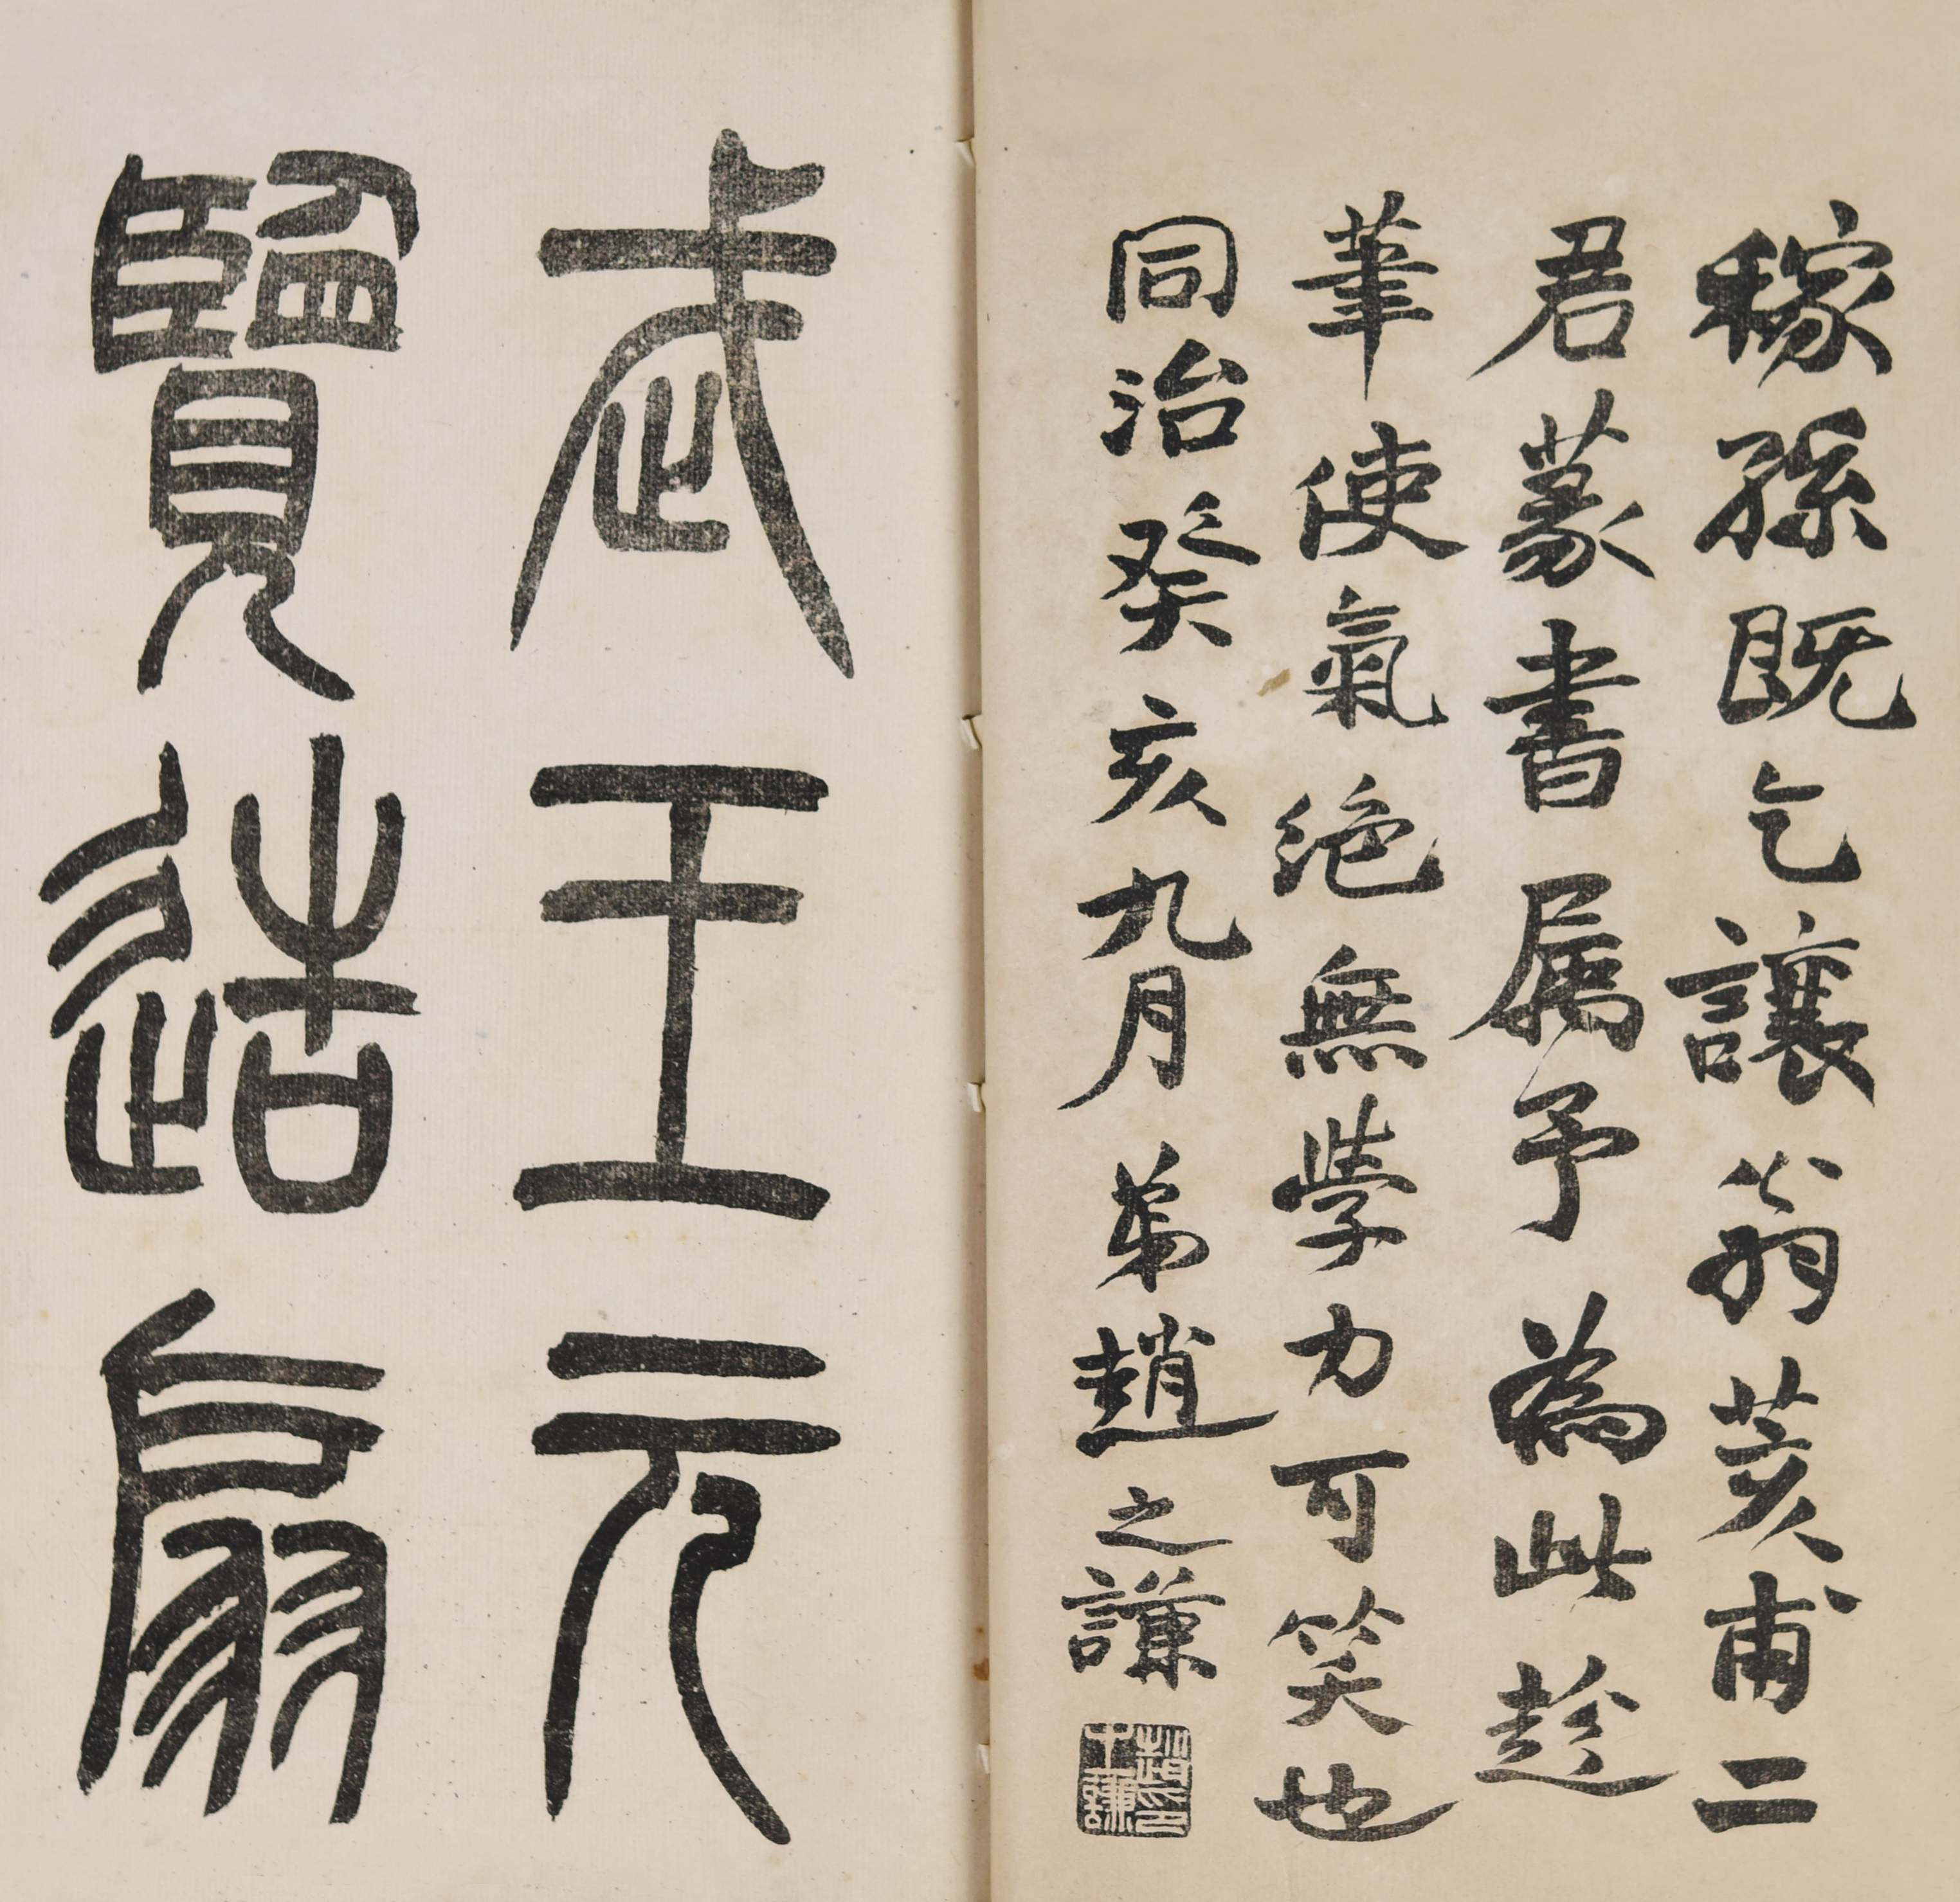 稼孫既乞讓翁荄甫二
君篆書属予為此趁
筆使氣絶無學力可笑也
同治癸亥九月弟趙之謙
趙印之謙
武王元
覽造扇